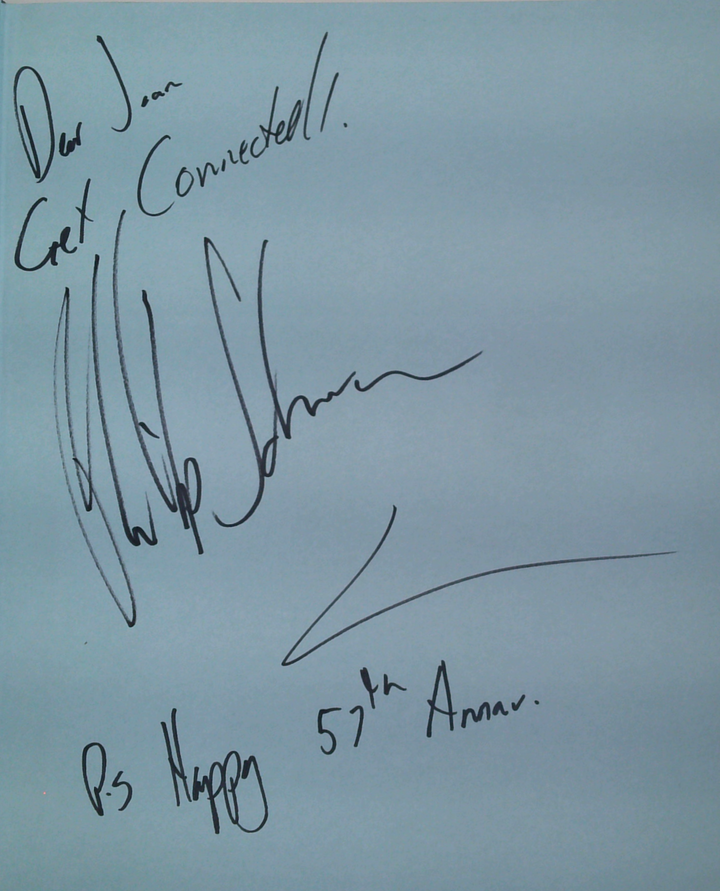 Dear Joan
Get Connected!!.
Philip
P.s Happy 57th Annav.